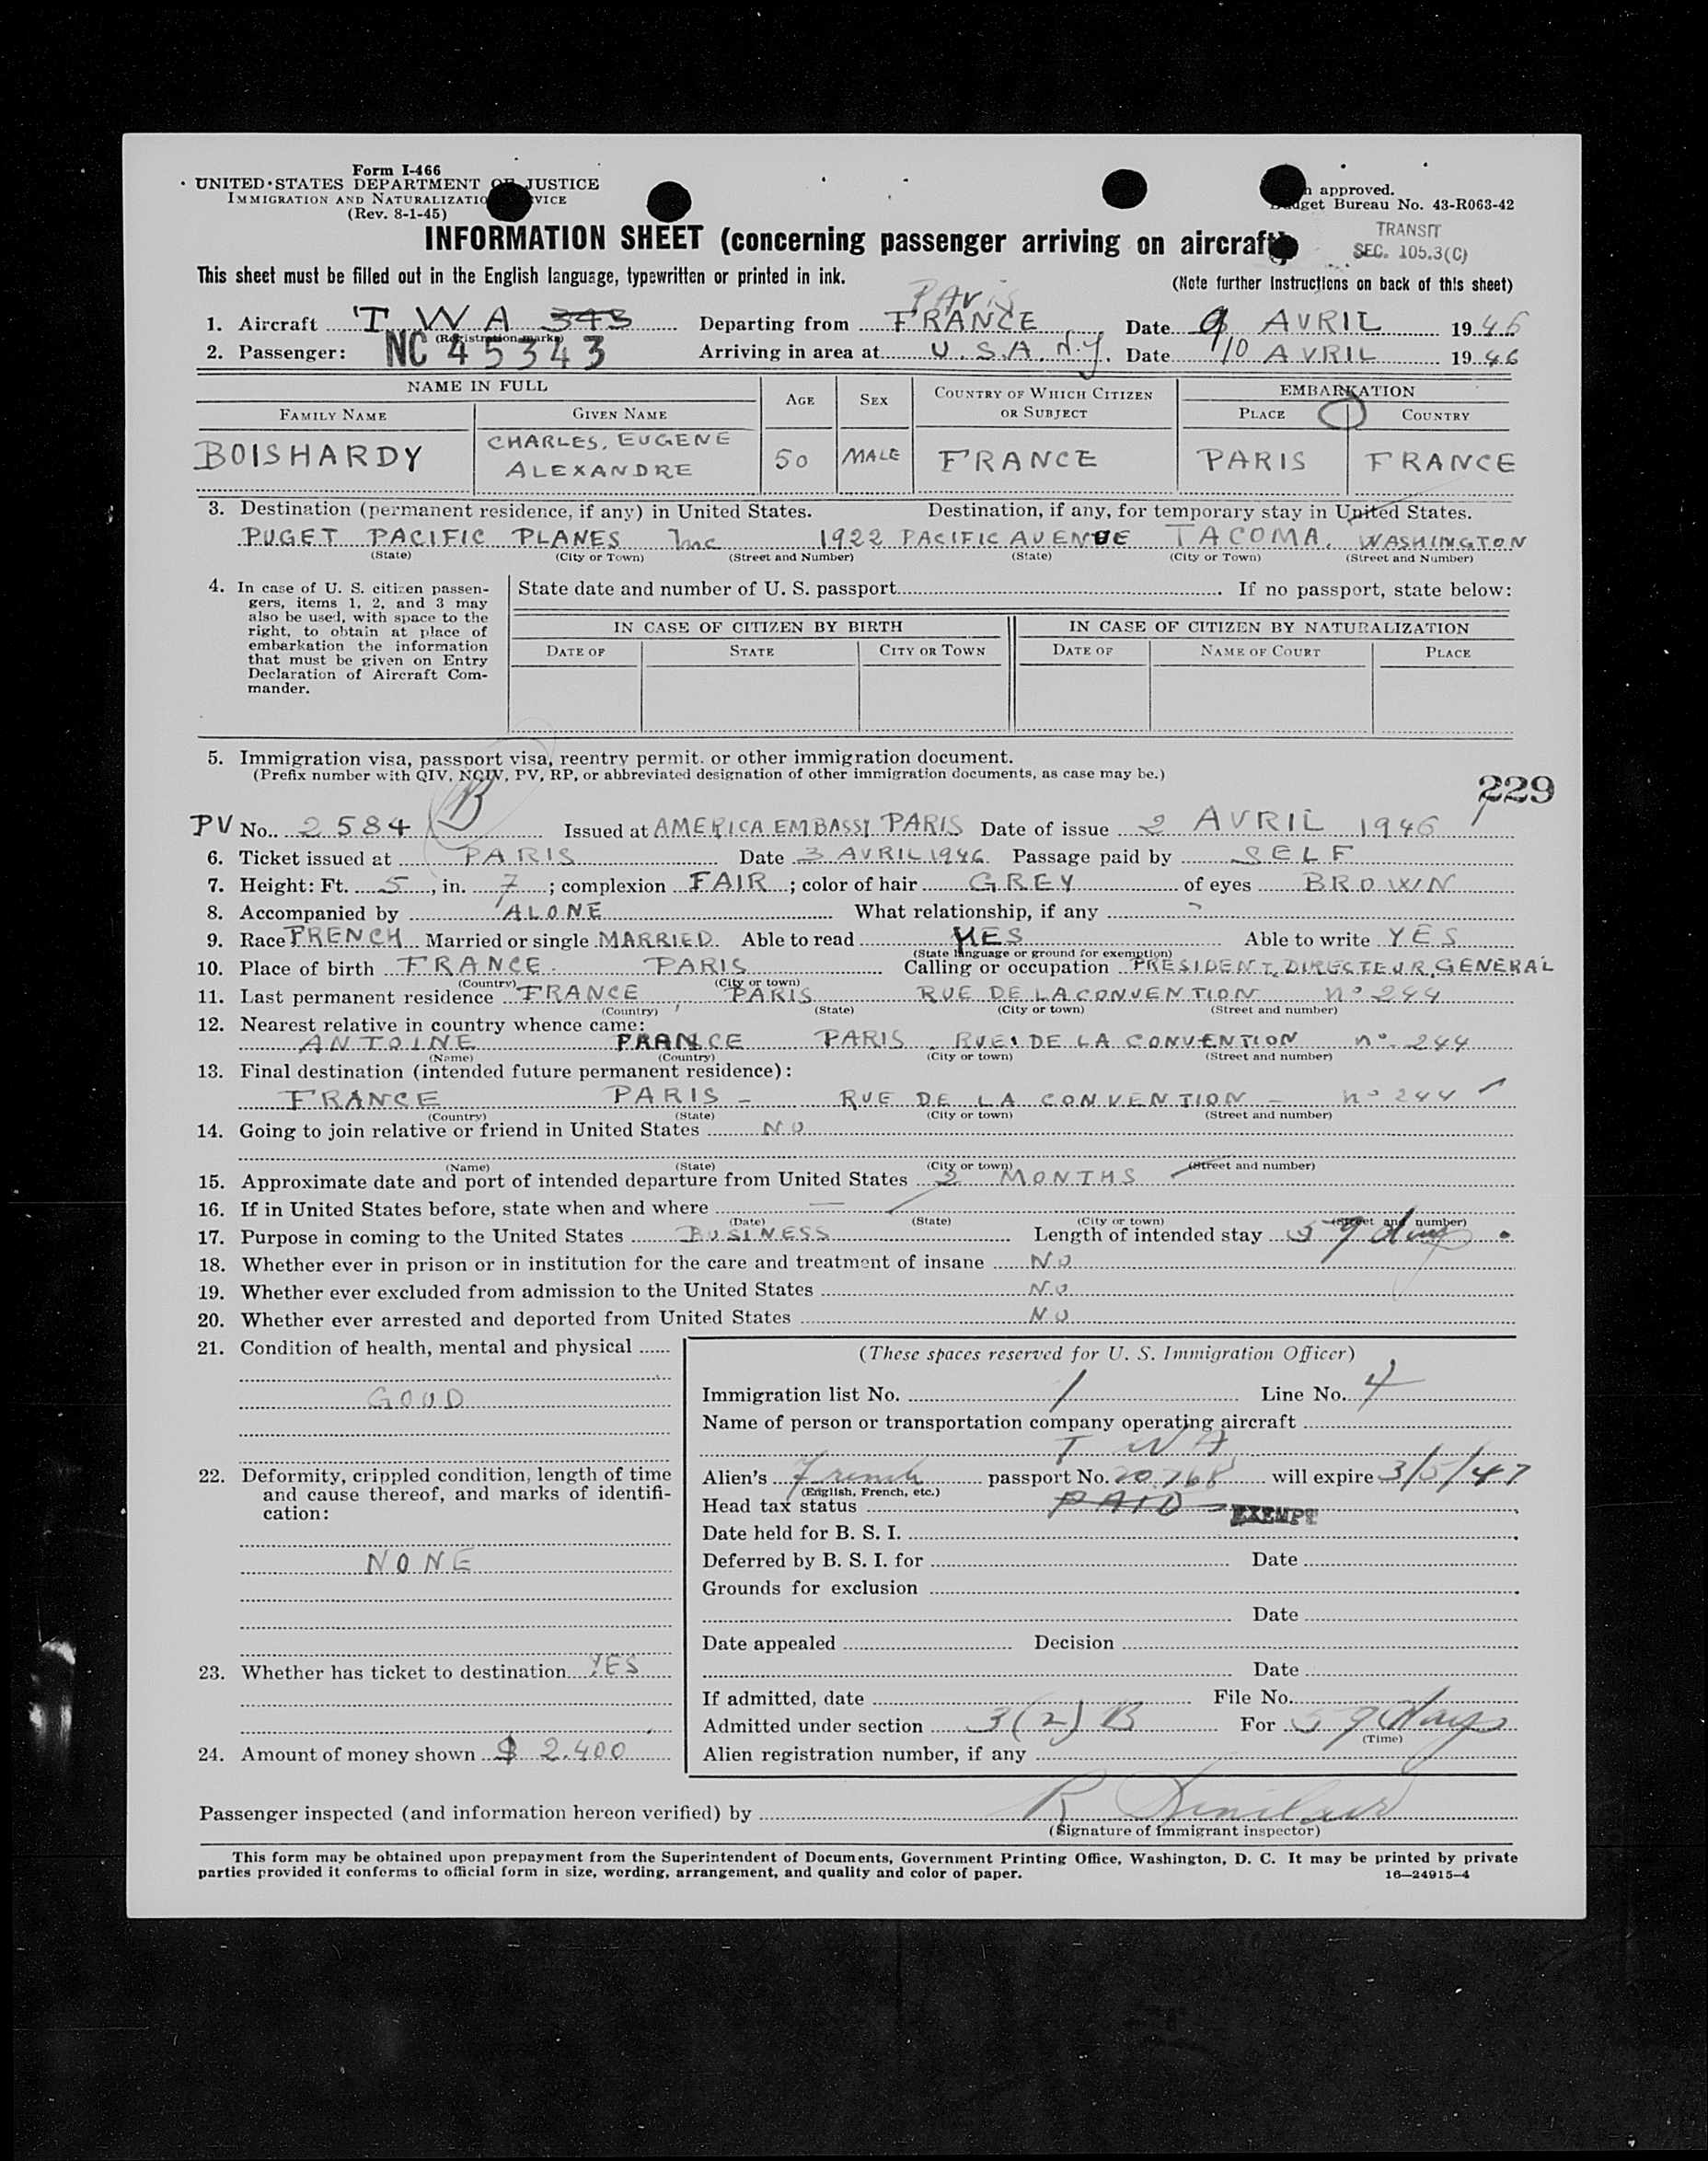 Form I-466
UNITED STATES DEPARTMENT OF JUSTICE
IMMIGRATION AND NATURALIZATION SERVICE
(Rev. 8-1-45)
approved.
Budget Bureau No. 43-R063-42
TRANSIT
SEC. 105.3(C)
INFORMATION SHEET (concerning passenger arriving on aircraft)
This sheet must be filled out in the English language, typewritten or printed in ink.
(Note further instructions on back of this sheet)
PAris
1. Aircraft TWA 343 Departing from FRANCE Date 9 AVRIL 1946
(Registration marks)
2. Passenger: NC 45343 Arriving in area at U.S.A. N.Y. Date 10 AVRIL 1946
NAME IN FULL AGE SEX COUNTRY OF WHICH CITIZEN OR SUBJECT EMBARKATION
FAMILY NAME GIVEN NAME PLACE COUNTRY
BOISHARDY CHARLES, EUGENE ALEXANDRE 50 MALE FRANCE PARIS FRANCE
3. Destination (permanent residence, if any) in United States. Destination, if any, for temporary stay in United States.
PUGET PACIFIC PLANES Inc 1922 PACIFIC AVENUE TACOMA. WASHINGTON
(State) (City or Town) (Street and Number) (State) (City or Town) (Street and Number)
4. In case of U. S. citizen passengers, items 1, 2, and 3 may also be used, with space to the right, to obtain at place of embarkation the information that must be given on Entry Declaration of Aircraft Commander.
State date and number of U. S. passport. If no passport, state below:
IN CASE OF CITIZEN BY BIRTH IN CASE OF CITIZEN BY NATURALIZATION
DATE OF STATE CITY OR TOWN DATE OF NAME OF COURT PLACE
5. Immigration visa, passport visa, reentry permit, or other immigration document.
(Prefix number with QIV, NQIV, PV, RP, or abbreviated designation of other immigration documents, as case may be.)
229
PV No. 2584 B Issued at AMERICA EMBASSY PARIS Date of issue 2 AVRIL 1946
6. Ticket issued at PARIS Date 3 AVRIL 1946 Passage paid by SELF
7. Height: Ft. 5, in. 7; complexion FAIR; color of hair GREY of eyes BROWN
8. Accompanied by ALONE What relationship, if any
9. Race FRENCH Married or single MARRIED Able to read YES Able to write YES
(State language or ground for exemption)
10. Place of birth FRANCE. PARIS Calling or occupation PRESIDENT DIRECTEUR GENERAL
(Country) (City or town)
11. Last permanent residence FRANCE, PARIS RUE DE LA CONVENTION n° 244
(Country) (State) (City or town) (Street and number)
12. Nearest relative in country whence came:
ANTOINE FRANCE PARIS RUE DE LA CONVENTION n°. 244
(Name) (Country) (City or town) (Street and number)
13. Final destination (intended future permanent residence):
FRANCE PARIS - RUE DE LA CONVENTION - n° 244
(Country) (State) (City or town) (Street and number)
14. Going to join relative or friend in United States NO
(Name) (State) (City or town) (Street and number)
15. Approximate date and port of intended departure from United States 2 MONTHS
16. If in United States before, state when and where —
(Date) (State) (City or town) (Street and number)
17. Purpose in coming to the United States BUSINESS Length of intended stay 59 days
18. Whether ever in prison or in institution for the care and treatment of insane NO
19. Whether ever excluded from admission to the United States NO
20. Whether ever arrested and deported from United States NO
21. Condition of health, mental and physical
GOOD
22. Deformity, crippled condition, length of time and cause thereof, and marks of identification:
NONE
23. Whether has ticket to destination YES
24. Amount of money shown $ 2.400
(These spaces reserved for U. S. Immigration Officer)
Immigration list No. 1 Line No. 4
Name of person or transportation company operating aircraft
TWA
Alien's French passport No. 20.768 will expire 3/5/47
(English, French, etc.)
Head tax status PAID EXEMPT
Date held for B. S. I.
Deferred by B. S. I. for Date
Grounds for exclusion
Date
Date appealed Decision
Date
If admitted, date File No.
Admitted under section 3(2) B For 59 days
(Time)
Alien registration number, if any
Passenger inspected (and information hereon verified) by R Sinclair
(Signature of immigrant inspector)
This form may be obtained upon prepayment from the Superintendent of Documents, Government Printing Office, Washington, D. C. It may be printed by private
parties provided it conforms to official form in size, wording, arrangement, and quality and color of paper.
16—24915-4